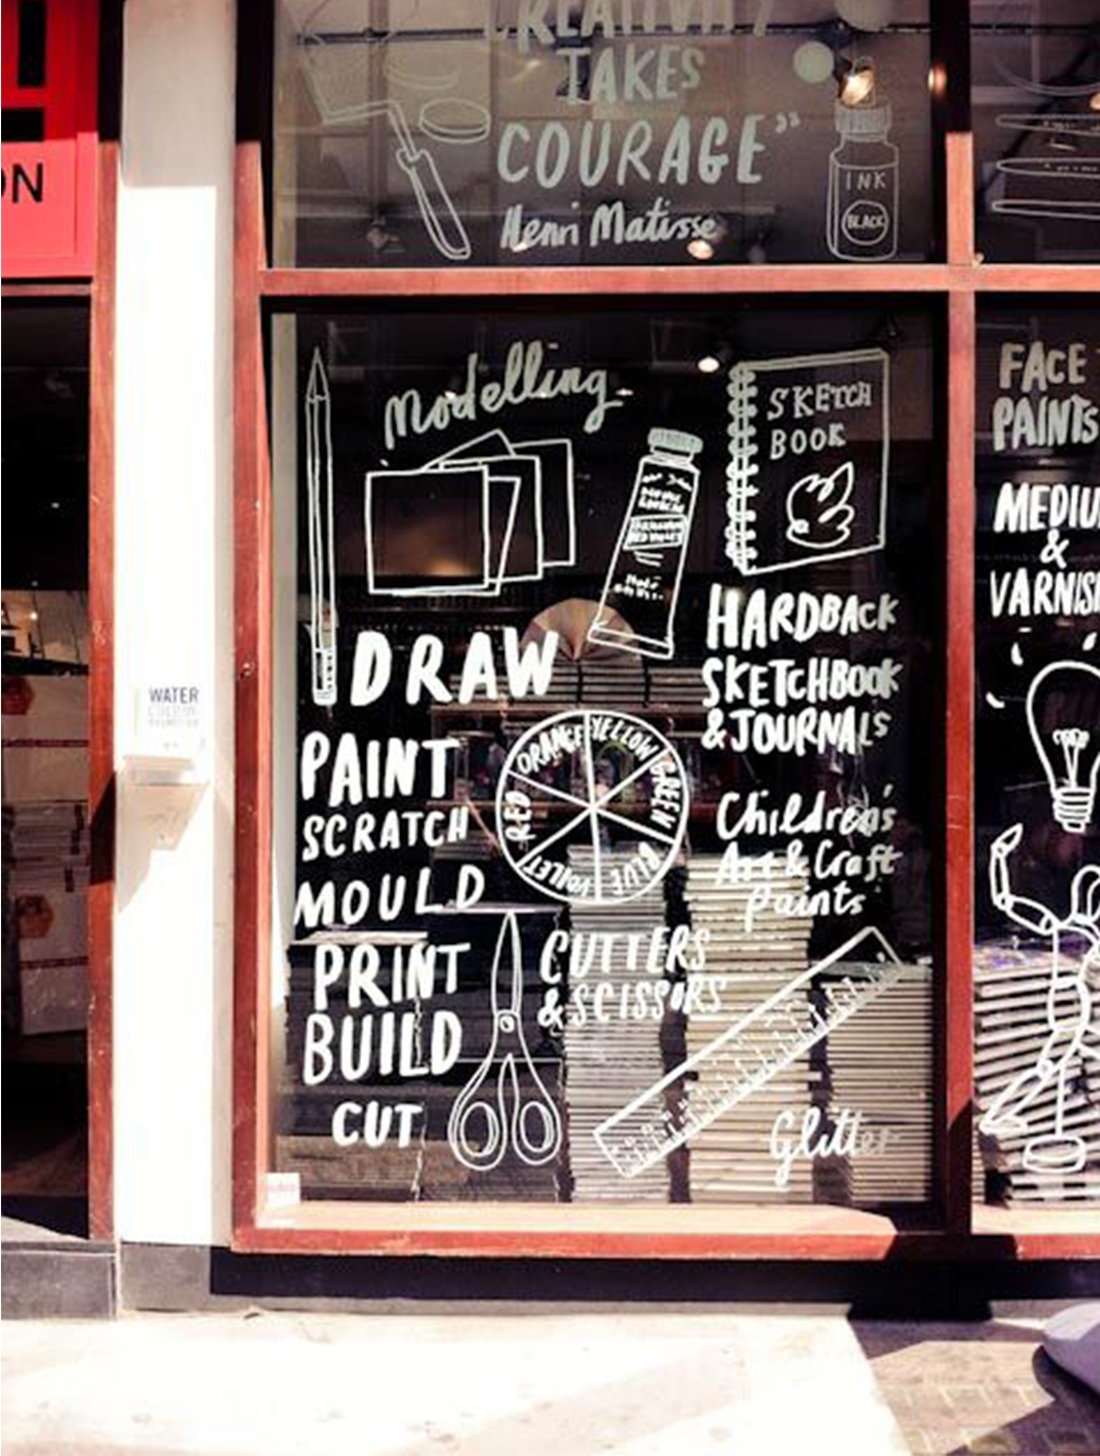 CREATIVITY
TAKES
COURAGE”
Henri Matisse
INK
BLACK
ON
Modelling
SKETCH
BOOK
DRAW
PAINT
SCRATCH
MOULD
PRINT
BUILD
CUT
ORANGE
YELLOW
GREEN
BLUE
VOILET
RED
CUTTERS
& SCISSORS
HARDBACK
SKETCHBOOK
& JOURNALS
Children's
Art & Craft
Paints
Glitter
FACE
PAINTS
MEDIU
&
VARNIS
WATER